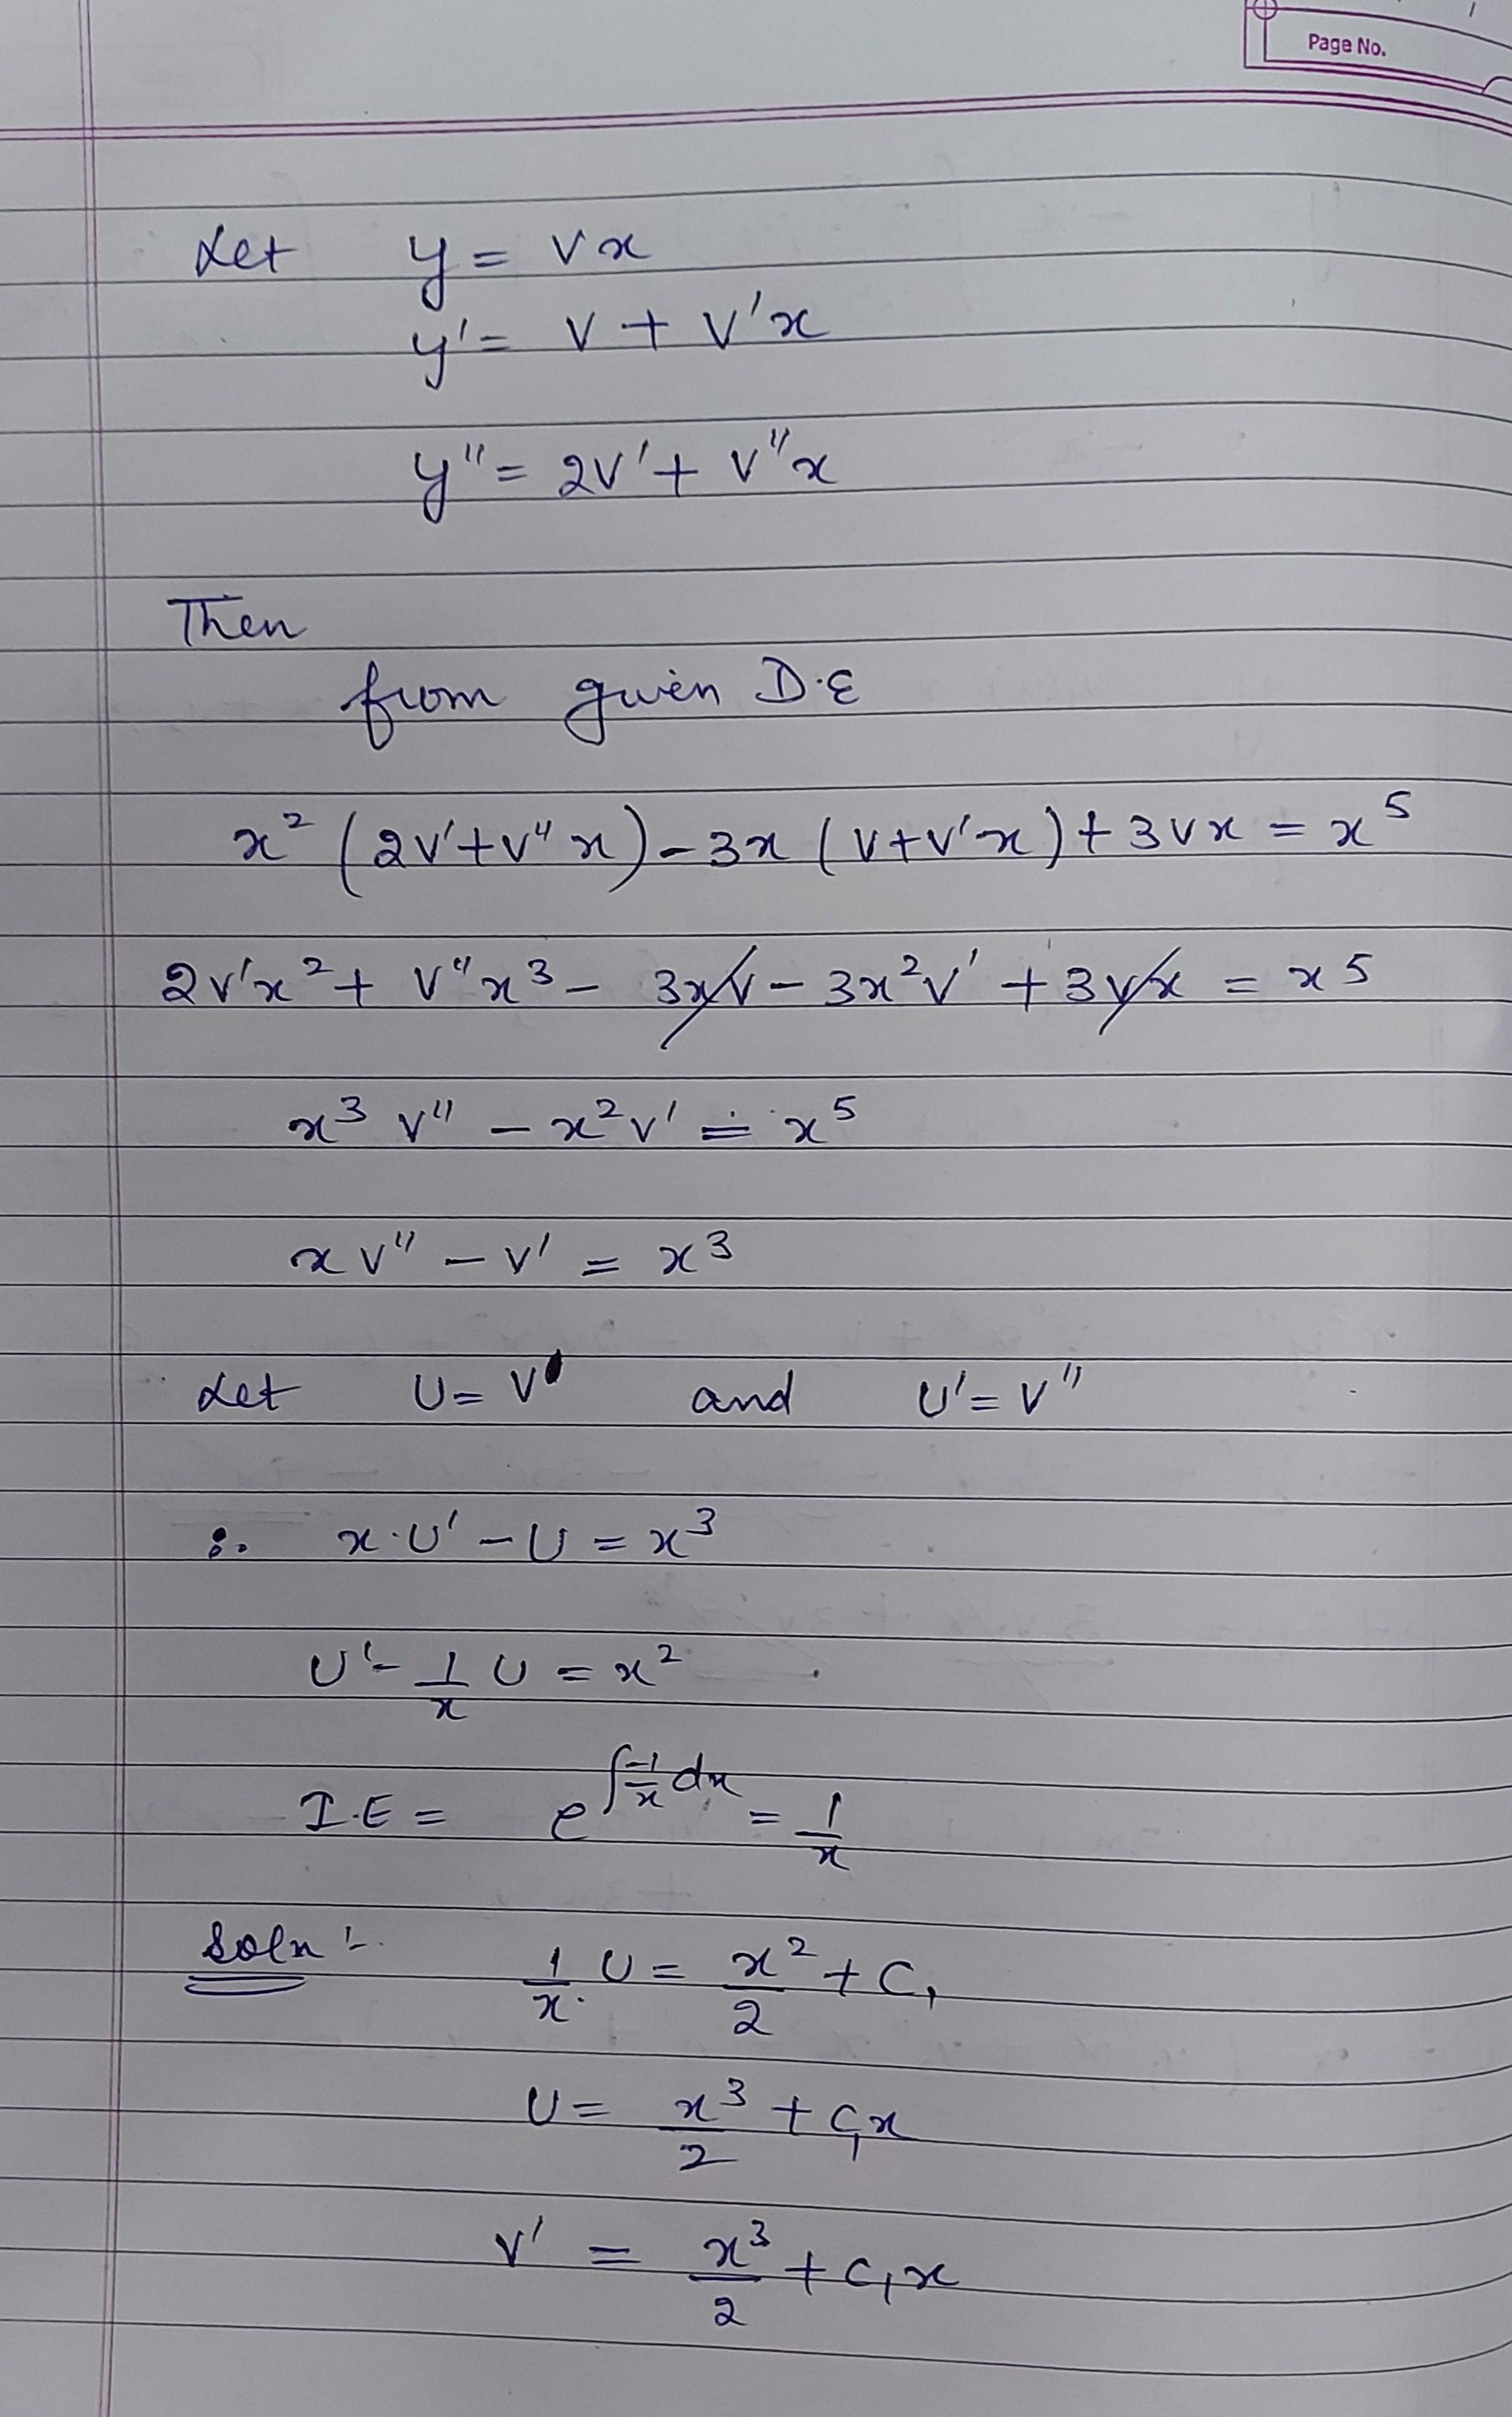 Page No.
Let y = vx
y' = v + v'x
y" = 2v' + v"x
Then
from given D.E
x² (2v' + v"x) - 3x (v + v'x) + 3vx = x⁵
2v'x² + v"x³ - 3xv - 3x²v' + 3vx = x⁵
x³ v" - x²v' = x⁵
x v" - v' = x³
Let U = v' and U' = v"
∴ x·U' - U = x³
U' - 1/x U = x²
I.E = e^∫-1/x dx = 1/x
Soln :-
1/x · U = x²/2 + C₁
U = x³/2 + C₁x
v' = x³/2 + C₁x